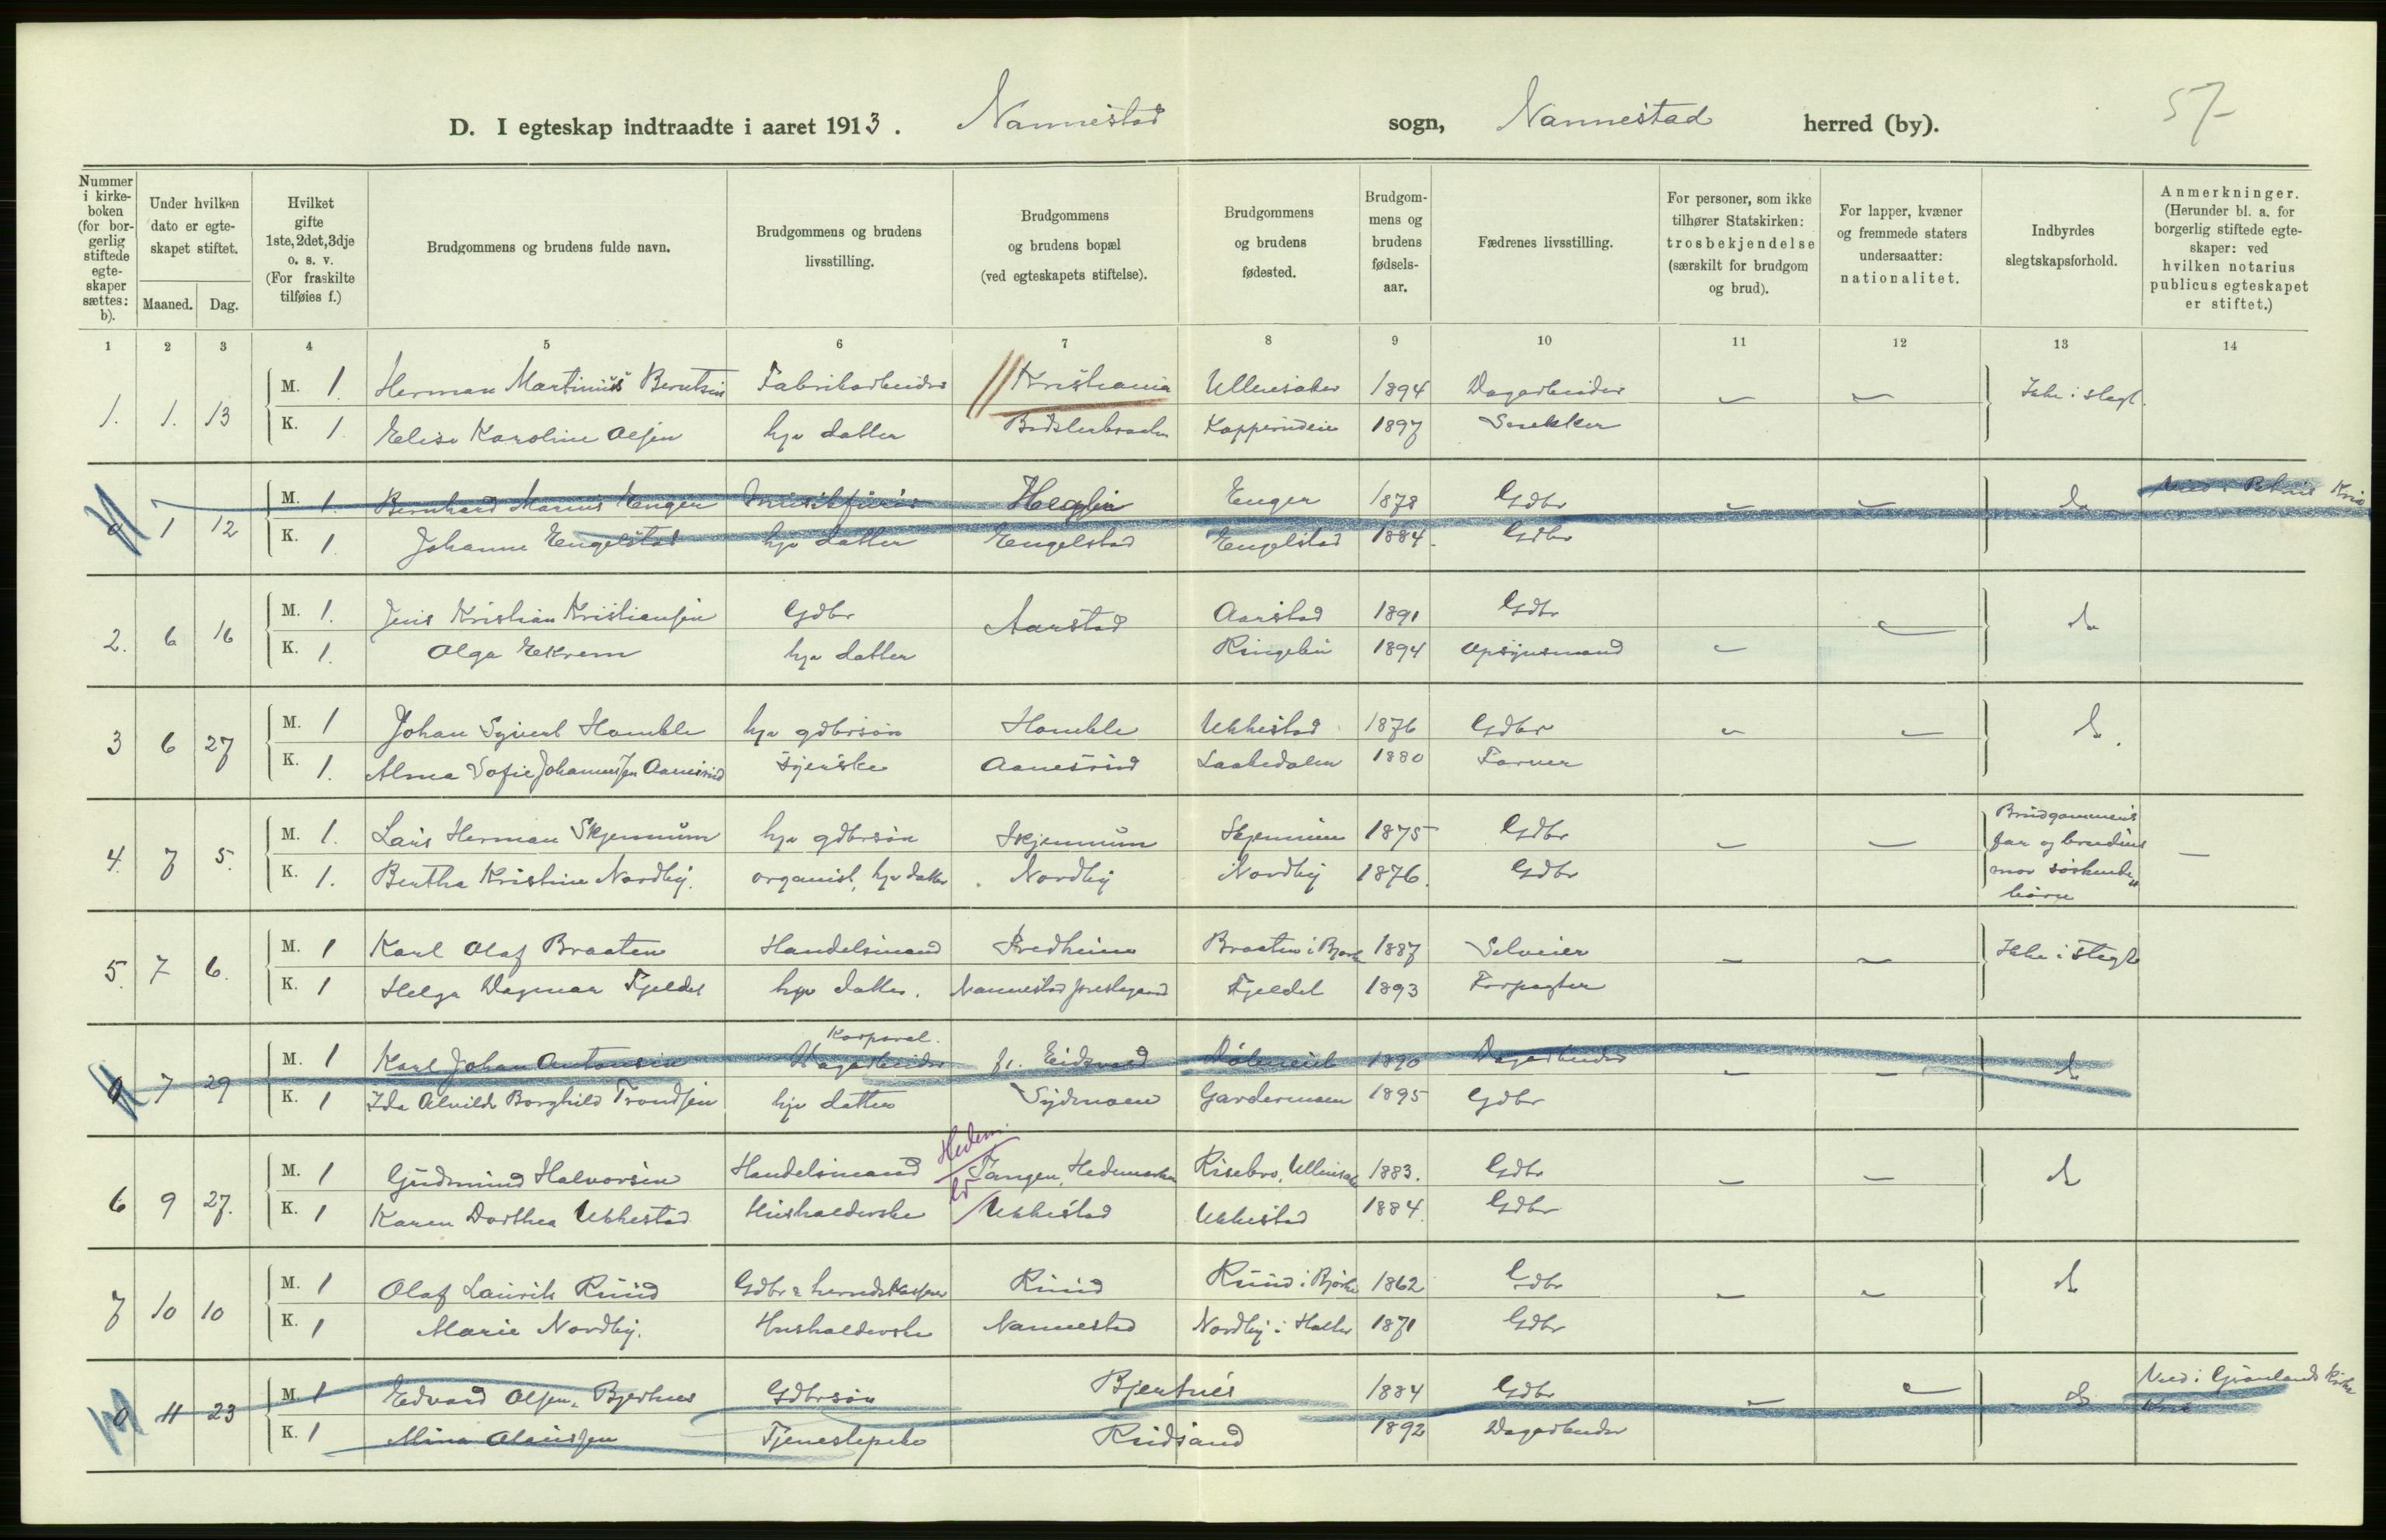 57
D. I egteskap indtraadte i aaret 1913. Nannestad sogn, Nannestad herred (by).
Nummer i kirkeboken (for borgerlig stiftede egteskaper sættes: b).
Under hvilken dato er egteskapet stiftet.
Maaned. Dag.
Hvilket gifte 1ste, 2det, 3dje o. s. v. (For fraskilte tilføies f.)
Brudgommens og brudens fulde navn.
Brudgommens og brudens livsstilling.
Brudgommens og brudens bopæl (ved egteskapets stiftelse).
Brudgommens og brudens fødested.
Brudgommens og brudens fødselsaar.
Fædrenes livsstilling.
For personer, som ikke tilhører Statskirken: trosbekjendelse (særskilt for brudgom og brud).
For lapper, kvæner og fremmede staters undersaatter: nationalitet.
Indbyrdes slegtskapsforhold.
Anmerkninger. (Herunder bl. a. for borgerlig stiftede egteskaper: ved hvilken notarius publicus egteskapet er stiftet.)
1 2 3 4 5 6 7 8 9 10 11 12 13 14
1. 1. 13 M. 1. Herman Martinius Berntsen Fabrikarbeider Kristiania Ullensaker 1894 Dagarbeider Ikke i slegt.
K. 1 Elise Karoline Olsen hjv datter 1897 Snekker
0 1 12 M. 1. Bernhard Marius Enger Heglin Enger 1878 Gdbr do
K. 1. Johanne Engelstad hjv datter Engelstad Engelstad 1884. Gdbr
2. 6 16 M. 1. Jens Kristian Kristiansen Gdbr Aarstad Aarstad 1891 Gdbr do
K. 1. Olga Ekrem hjv datter Ringebu 1894 Opsynsmand
3 6 27 M. 1 Johan Syvert Homble hjv gdbrsøn Homble Ukkestad 1876 Gdbr do.
K. 1. Alma Sofie Johannessen Aanesrud tjeneske Aanesrud Laakedalen 1880 Farver
4. 7 5. M. 1. Lars Herman Skjennum hjv gdbrsøn Skjennum Skjennum 1875 Gdbr Brudgommens far og brudens mor søskendebørn
K. 1. Bertha Kristine Nordby. organist, hjv datter Nordby Nordby 1876. Gdbr
5. 7 6. M. 1 Karl Olaf Braaten Handelsmand Fredheim Braaten i Bjerke 1887 Selveier Ikke i slegt
K. 1 Helga Dagmar Fjeldet hjv datter. Nannestad prestegaard Fjeldet 1893 Forpagter
Korporal.
0 7 29 M. 1 Karl Johan Antonsen Dagarbeider Eidsvold 1890 Dagarbeider do
K. 1 Ida Alvilde Borghild Trondsen hjv datter Sydmoen Gardermoen 1895 Gdbr
Hedem.
6 9 27. M. 1 Gudmund Halvorsen Handelsmand Tangen, Hedemarken Risebro, Ullensaker 1883. Gdbr do
K. 1 Karen Dorthea Ukkestad Husholderske Ukkestad Ukkestad 1884. Gdbr
7 10 10 M. 1 Olaf Laurits Ruud Gdbr & herredskasserer Ruud Ruud i Bjerke 1862 Gdbr do
K. 1 Marie Nordby. Husholderske Nannestad Nordby i Holter 1871 Gdbr
0 11 23 M. 1 Edvard Olsen Bjerknes Gdbrsøn Bjertnes 1884 Gdbr do Viet i Grønlands kirke Kria
K. 1 Mina Olaussen Tjenestepike Rudsand 1892 Dagarbeider